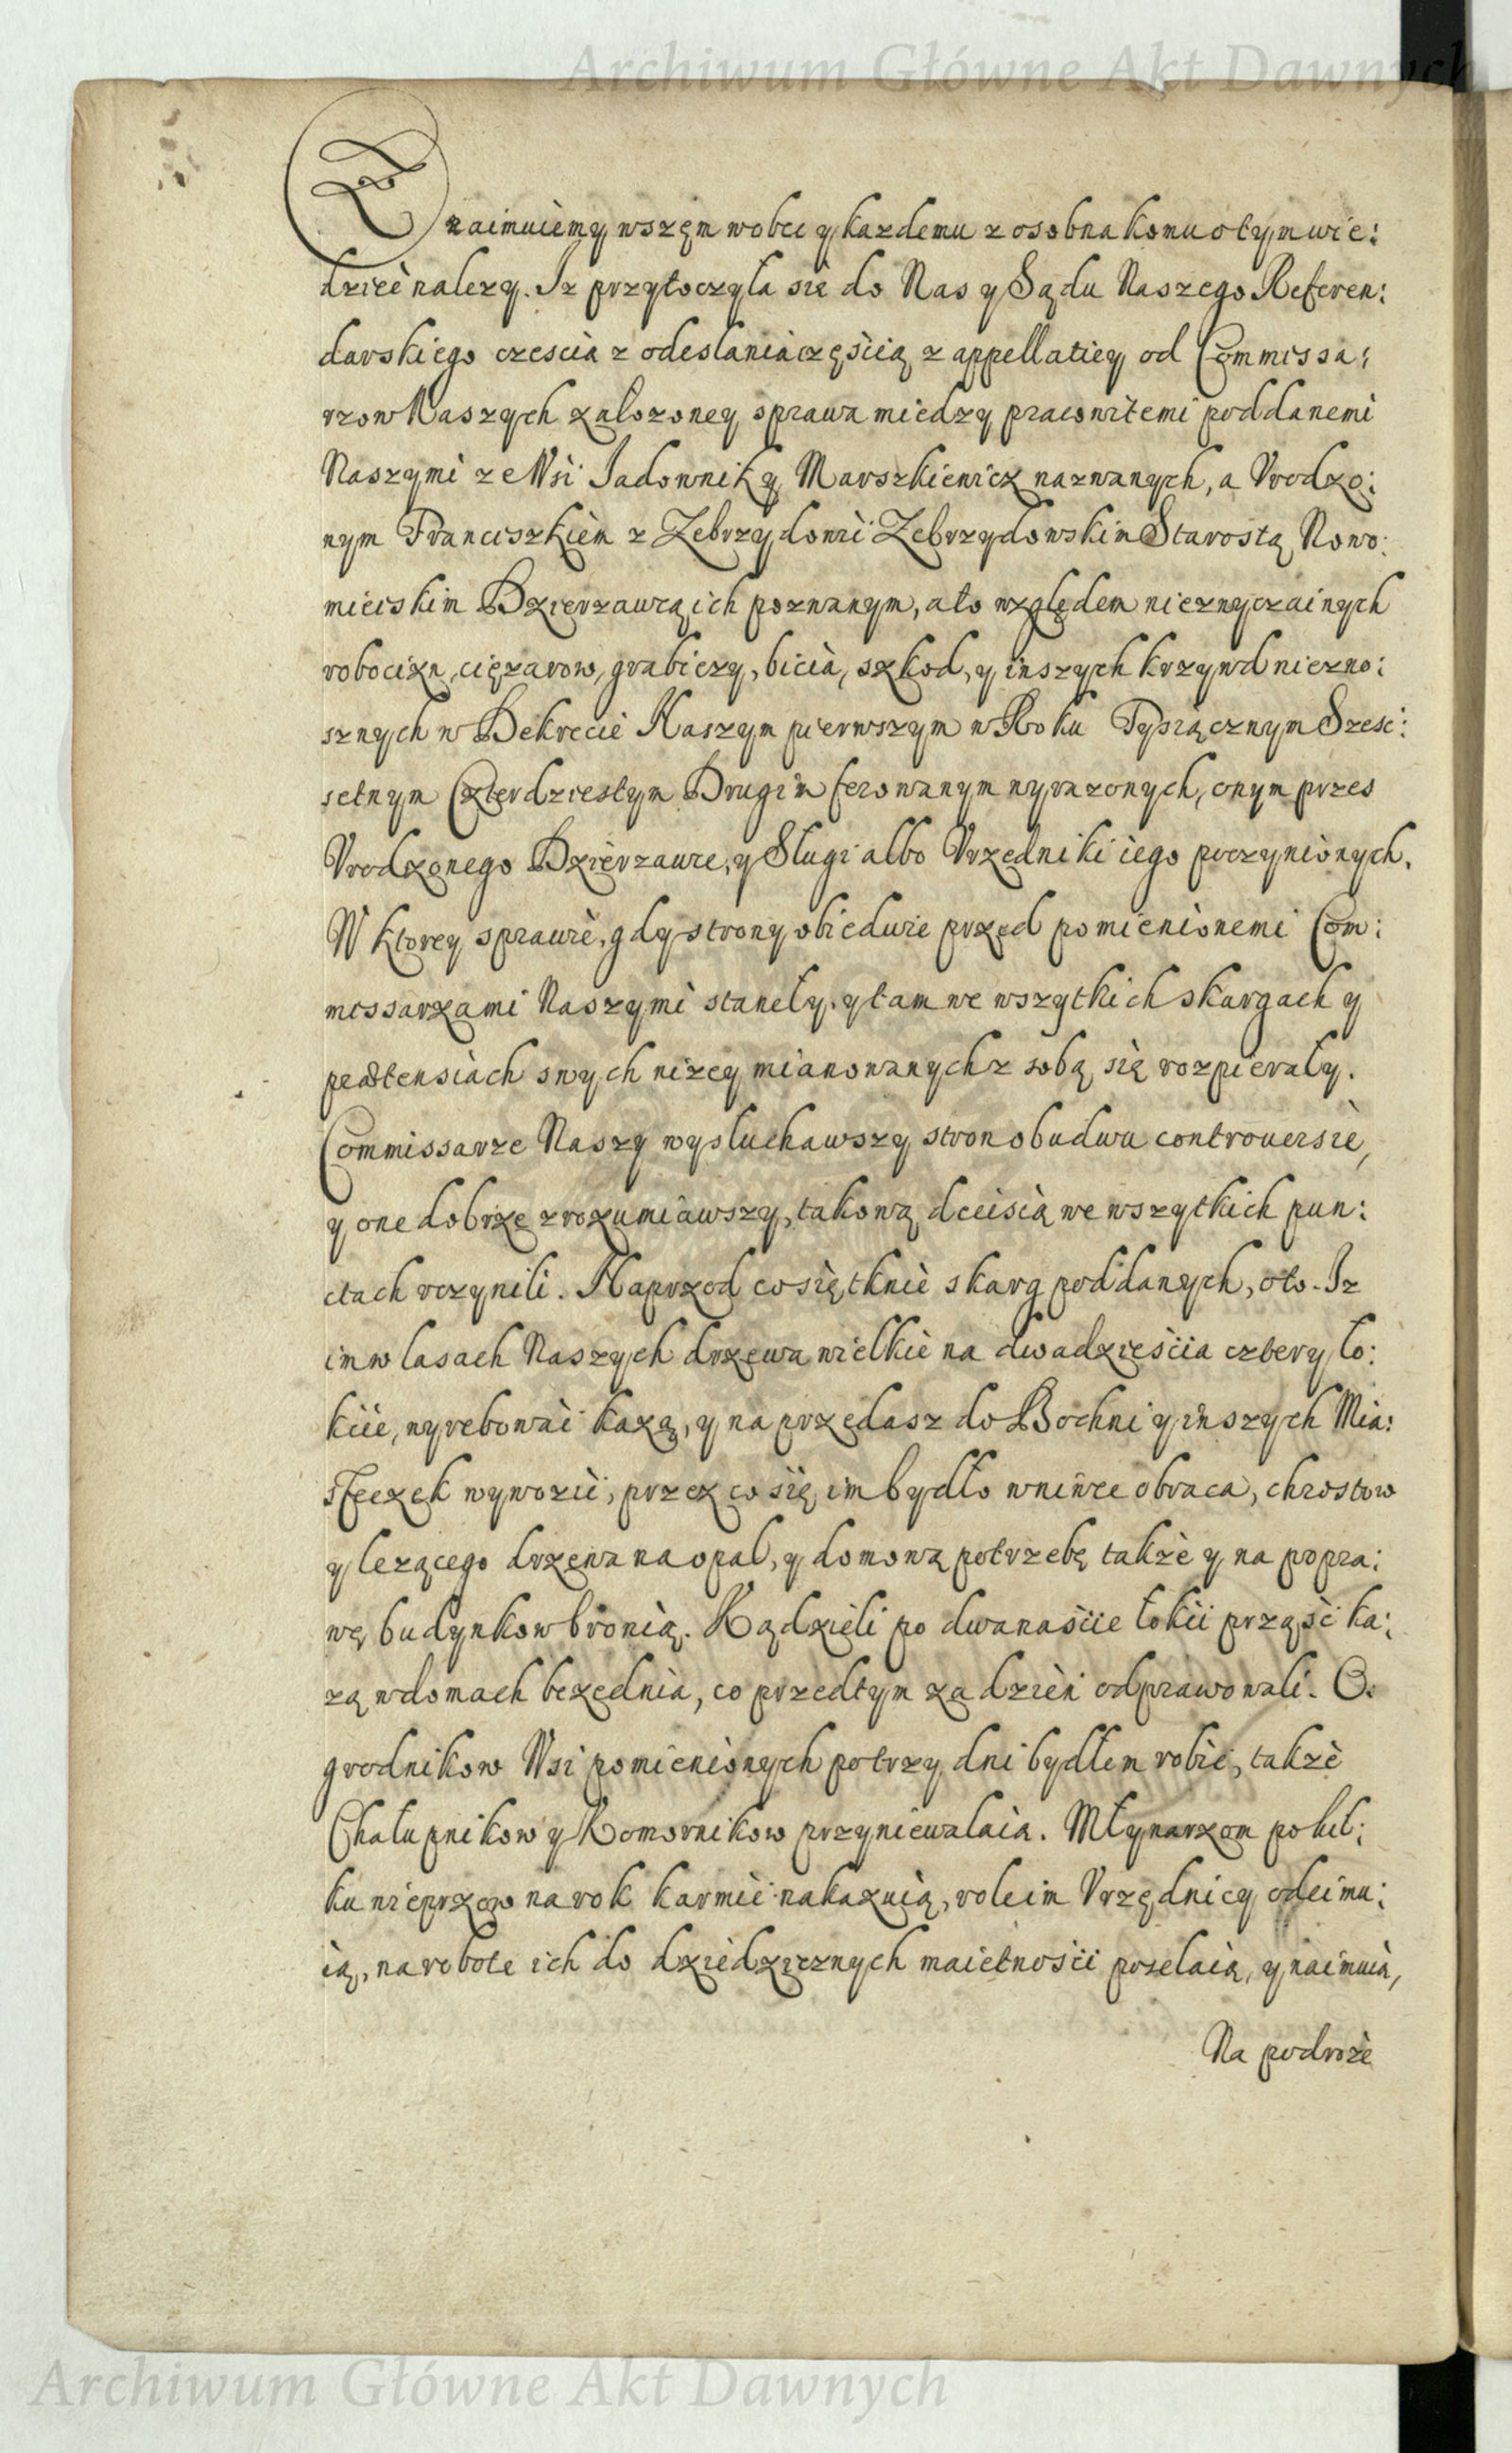 Archiwum Główne Akt Dawnych
Znaimuiemy wszęm wobec y kazdemu z osobna komu o tym wie:
dziec nalezy. Iz przytoczyła sie do Nas y Sądu Naszego Referen:
darskiego czescią z odesłania częścią z appellatiey od Commissa:
rzow Naszych załozoney sprawa miedzy pracowitemi poddanemi
Naszymi ze Wsi Jadowniky Marszkiewicz nazwanych, a Vrodzo:
nym Franciszkiem z Zebrzydowic Zebrzydowskim Starostą Nowo:
mieiskim Dzierzawcą ich pozwanym, a to względem niezwyczainych
robocizn, cięzarow, grabiezy, bicia, szkod, y inszych krzywd niezno:
sznych w Dekrecie Naszym pierwszym w Roku Tysiącznym Szesc:
setnym Czterdziestym Drugim ferowanym wyrazonych, onym przes
Vrodzonego Dzierzawce, y Sługi albo Vrzedniki iego poczynionych.
W ktorey sprawie, gdy strony obiedwie przed pomienionemi Com:
missarzami Naszymi staneły, y tam we wszytkich skargach y
praetensiach swych nizey mianowanych z sobą się rozpierały.
Commissarze Naszy wysłuchawszy stron obudwu controuersie,
y one dobrze zrozumiawszy, takową deeisią we wszytkich pun:
ctach vczynili. Naprzod co się tknie skarg poddanych, o to. Iz
im w lasach Naszych drzewa wielkie na dwadziescia cztery ło:
kcie, wyrebowac kazą, y na przedasz do Bochni y inszych Mia:
steczek wywozic, przez co się im bydło wniwec obraca, chrostow
y lezącego drzewa na opał, y domową potrzebę takze y na popra:
wę budynkow bronią. Kądzieli po dwanascie łokci prząsć ka:
zą w domach beze dnia, co przedtym za dzien odprawowali. O:
grodnikow Wsi pomienionych po trzy dni bydłem robic, takze
Chałupnikow y Komornikow przyniewalaią. Młynarzom po kil:
ku nieprzow na rok karmic nakazuią, role im Vrzędnicy odeimu:
ią, na robote ich do dziedzicznych maietnosci posełaią, y naimuią,
Na podroze
Archiwum Główne Akt Dawnych